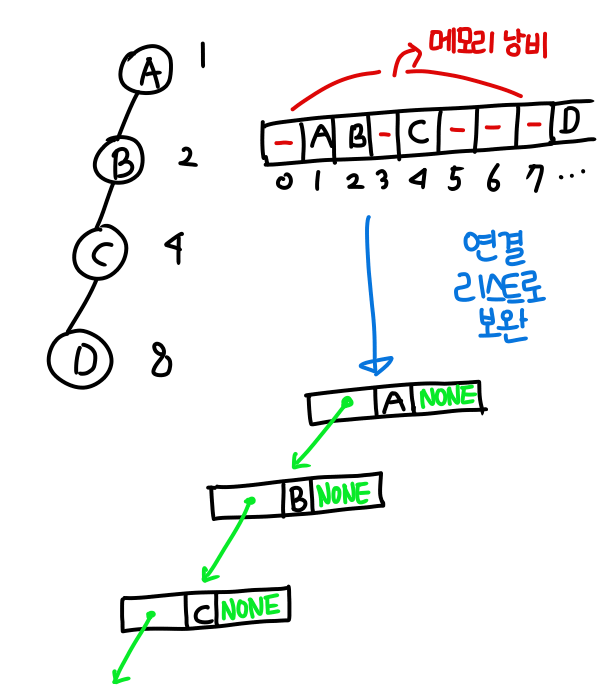 A 1
B 2
C 4
D 8
메모리 낭비
- A B - C - - - D
0 1 2 3 4 5 6 7 ...
연결
리스트로
보완
A NONE
B NONE
C NONE